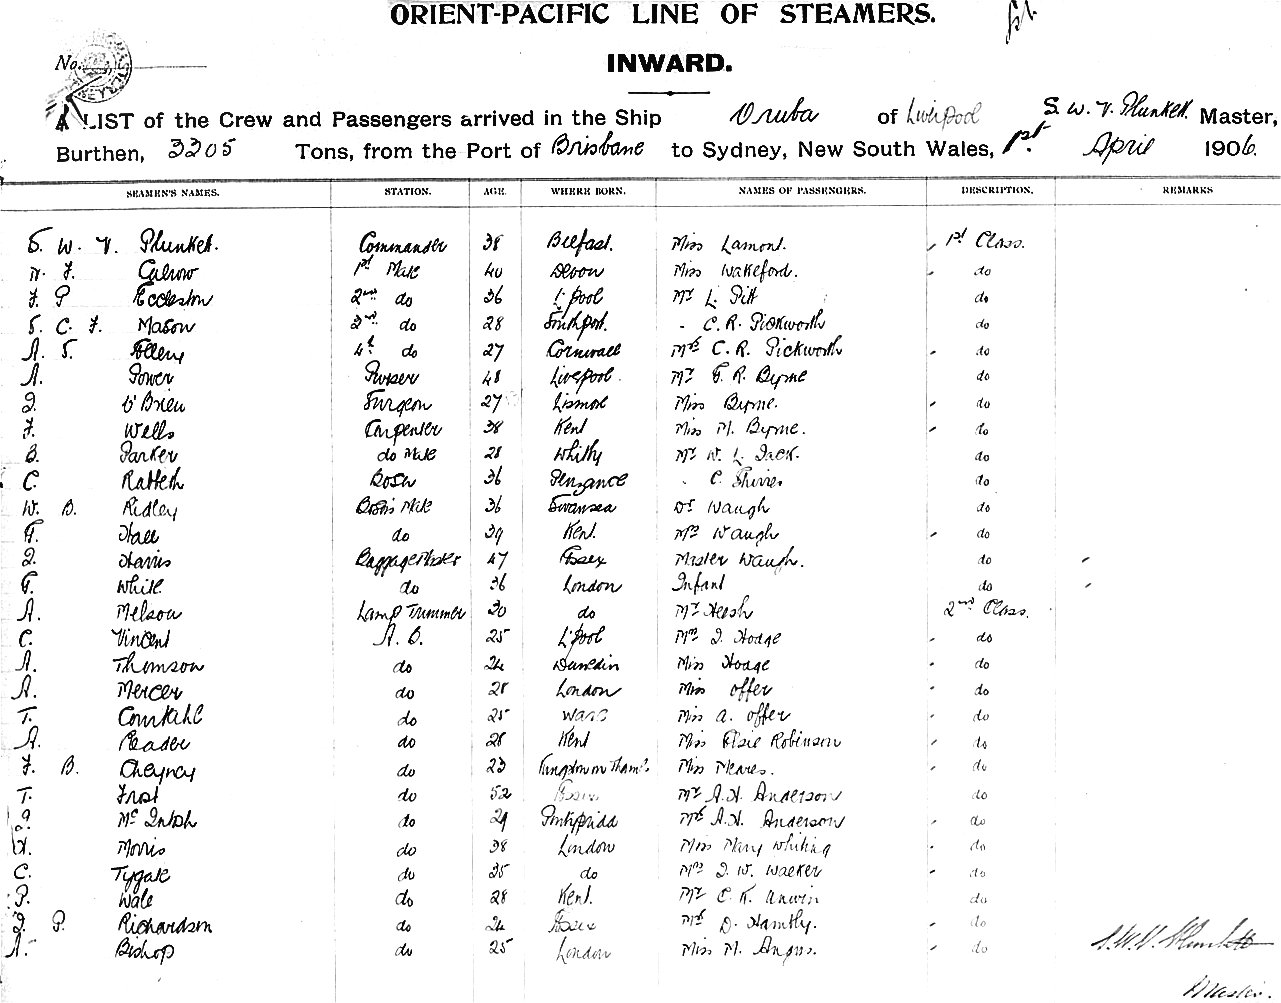 ORIENT-PACIFIC LINE OF STEAMERS.
No.
INWARD.
A LIST of the Crew and Passengers arrived in the Ship Oruba of Liverpool S. W. V. Plunkett Master,
Burthen, 3305 Tons, from the Port of Brisbane to Sydney, New South Wales, 1st April 1906.
SEAMEN'S NAMES. STATION. AGE. WHERE BORN. NAMES OF PASSENGERS. DESCRIPTION. REMARKS
S. W. V. Plunkett. Commander 38 Belfast. Miss Lamont. 1st Class.
1st Mate 40 Devon Miss Wakeford. do
F. P Eccleston 2nd do 36 L'pool Mr L. Pitt do
S. C. F. Mason 3rd do 28 Southport. - C. R. Pickworth do
A. S. Allery 4th do 27 Cornwall Mrs C. R. Pickworth do
A. Power Purser 48 Liverpool. Mr F. R. Byrne do
J. O'Brien Surgeon 27 Lismore Miss Byrne. do
F. Wells Carpenter 38 Kent Miss M. Byrne. do
B. Parker do Mate 28 Whitby Mr W. L. Jack. do
C. Bosn 36 Penzance - C. do
W. B. Ridley Bosn's Mate 36 Swansea Dr Waugh do
F. Hall do 39 Kent. Mrs Waugh do
J. Harris Baggage Master 47 Essex Master Waugh. do
F. White do 36 London Infant do
A. Melson Lamp Trimmer 30 do Mr Hersh 2nd Class.
C. Vincent A. B. 25 L'pool Mrs J. Hodge do
A. Thomson do 24 Dunedin Miss Hodge do
A. Mercer do 28 London Miss Offer do
T. do 25 Miss A. Offer do
A. Reader do 28 Kent Miss Elsie Robinson do
F. B. Cheyney do 23 Kingston on Thames Miss Meares. do
T. Frost do 52 Essex Mr A. H. Anderson do
J. McIntosh do 29 Pontypridd Mrs A. H. Anderson do
H. Morris do 38 London Miss Mary Whiting do
C. Tygate do 35 do Mrs J. W. Walker do
P. Wale do 28 Kent. Mr C. K. Unwin do
J. P. Richardson do 24 Essex Mrs D. Hambly. do
A. Bishop do 25 London Miss M. Angus. do
S. W. V. Plunkett
Master.